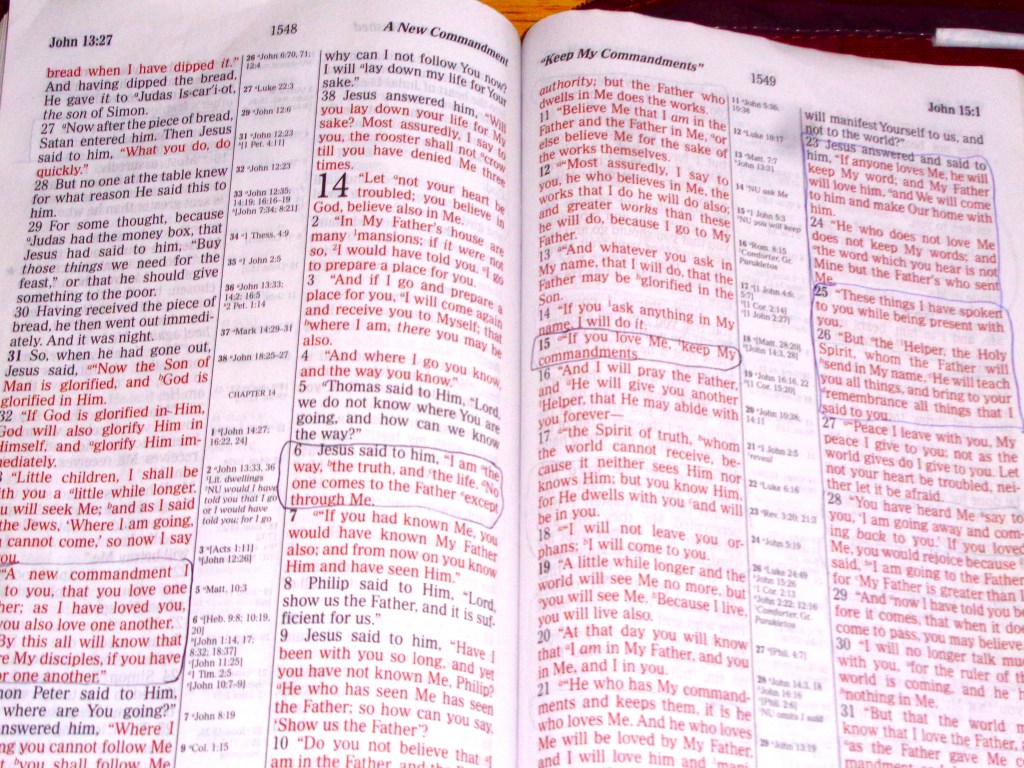 John 13:27
1548
A New Commandment
bread when I have dipped it."
And having dipped the bread,
He gave it to Judas Is·car'i·ot,
the son of Simon.
27 Now after the piece of bread,
Satan entered him. Then Jesus
said to him, "What you do, do
quickly."
28 But no one at the table knew
for what reason He said this to
him.
29 For some thought, because
Judas had the money box, that
Jesus had said to him, "Buy
those things we need for the
feast," or that he should give
something to the poor.
30 Having received the piece of
bread, he then went out immedi-
ately. And it was night.
31 So, when he had gone out,
Jesus said, "Now the Son of
Man is glorified, and God is
glorified in Him.
32 "If God is glorified in Him,
God will also glorify Him in
Himself, and glorify Him im-
mediately.
"Little children, I shall be
with you a little while longer.
You will seek Me; and as I said
to the Jews, 'Where I am going,
you cannot come,' so now I say
you.
"A new commandment I
to you, that you love one
other; as I have loved you,
you also love one another.
"By this all will know that
are My disciples, if you have
for one another."
mon Peter said to Him,
where are You going?"
answered him, "Where I
going you cannot follow Me
but you shall follow Me
26 John 6:70, 71;
12:4
27 Luke 22:3
29 John 12:6
31 John 12:23
[1 Pet. 4:11]
32 John 12:23
33 John 12:35;
14:19; 16:16–19
[John 7:34; 8:21]
34 1 Thess. 4:9
35 1 John 2:5
36 John 13:33;
14:2; 16:5
2 Pet. 1:14
37 Mark 14:29–31
38 John 18:25–27
CHAPTER 14
1 [John 14:27;
16:22, 24]
2 John 13:33, 36
Lit. dwellings
NU would I have
told you that I go
or I would have
told you; for I go
3 [Acts 1:11]
[John 12:26]
5 Matt. 10:3
6 [Heb. 9:8; 10:19,
20]
[John 1:14, 17;
8:32; 18:37]
[John 11:25]
1 Tim. 2:5
[John 10:7–9]
7 John 8:19
9 Col. 1:15
why can I not follow You now?
I will lay down my life for Your
sake."
38 Jesus answered him, "Will
you lay down your life for My
sake? Most assuredly, I say to
you, the rooster shall not crow
till you have denied Me three
times.
14 "Let not your heart be
troubled; you believe in
God, believe also in Me.
2 "In My Father's house are
many mansions; if it were not
so, I would have told you. I go
to prepare a place for you.
3 "And if I go and prepare a
place for you, I will come again
and receive you to Myself; that
where I am, there you may be
also.
4 "And where I go you know,
and the way you know."
5 Thomas said to Him, "Lord,
we do not know where You are
going, and how can we know
the way?"
6 Jesus said to him, "I am the
way, the truth, and the life. No
one comes to the Father except
through Me.
7 "If you had known Me, you
would have known My Father
also; and from now on you know
Him and have seen Him."
8 Philip said to Him, "Lord,
show us the Father, and it is suf-
ficient for us."
9 Jesus said to him, "Have I
been with you so long, and yet
you have not known Me, Philip?
He who has seen Me has seen
the Father; so how can you say,
'Show us the Father'?
10 "Do you not believe that I
am in the Father, and the Father
"Keep My Commandments"
1549
John 15:1
authority; but the Father who
dwells in Me does the works.
11 "Believe Me that I am in the
Father and the Father in Me, or
else believe Me for the sake of
the works themselves.
12 "Most assuredly, I say to
you, he who believes in Me, the
works that I do he will do also;
and greater works than these
he will do, because I go to My
Father.
13 "And whatever you ask in
My name, that I will do, that the
Father may be glorified in the
Son.
14 "If you ask anything in My
name, I will do it.
15 "If you love Me, keep My
commandments
16 "And I will pray the Father,
and He will give you another
Helper, that He may abide with
you forever—
17 "the Spirit of truth, whom
the world cannot receive, be-
cause it neither sees Him nor
knows Him; but you know Him,
for He dwells with you and will
be in you.
18 "I will not leave you or-
phans; I will come to you.
19 "A little while longer and the
world will see Me no more, but
you will see Me. Because I live,
you will live also.
20 "At that day you will know
that I am in My Father, and you
in Me, and I in you.
21 "He who has My command-
ments and keeps them, it is he
who loves Me. And he who loves
Me will be loved by My Father,
and I will love him and
11 John 5:36;
10:38
12 Luke 10:17
13 Matt. 7:7
John 13:31
14 NU ask Me
15 1 John 5:3
NU you will keep
16 Rom. 8:15
Comforter, Gr.
Parakletos
17 [1 John 4:6;
5:7]
[1 Cor. 2:14]
[1 John 2:27]
18 [Matt. 28:20]
[John 14:3, 28]
19 John 16:16, 22
[1 Cor. 15:20]
20 John 10:38;
14:11
21 1 John 2:5
reveal
22 Luke 6:16
23 Rev. 3:20; 21:3
24 John 5:19
26 Luke 24:49
John 15:26
1 Cor. 2:13
John 2:22; 12:16
Comforter, Gr.
Parakletos
27 [Phil. 4:7]
28 John 14:3, 18
John 16:16
[Phil. 2:6]
NU omits I said
29 John 13:19
will manifest Yourself to us, and
not to the world?"
23 Jesus answered and said to
him, "If anyone loves Me, he will
keep My word; and My Father
will love him, and We will come
to him and make Our home with
him.
24 "He who does not love Me
does not keep My words; and
the word which you hear is not
Mine but the Father's who sent
Me.
25 "These things I have spoken
to you while being present with
you.
26 "But the Helper, the Holy
Spirit, whom the Father will
send in My name, He will teach
you all things, and bring to your
remembrance all things that I
said to you.
27 "Peace I leave with you, My
peace I give to you; not as the
world gives do I give to you. Let
not your heart be troubled, nei-
ther let it be afraid.
28 "You have heard Me say to
you, 'I am going away and com-
ing back to you.' If you loved
Me, you would rejoice because
said, 'I am going to the Father
for My Father is greater than I
29 "And now I have told you be
fore it comes, that when it do
come to pass, you may believe
30 "I will no longer talk mu
with you, for the ruler of th
world is coming, and he h
nothing in Me.
31 "But that the world m
know that I love the Father,
as the Father gave Me c
mandment, so I